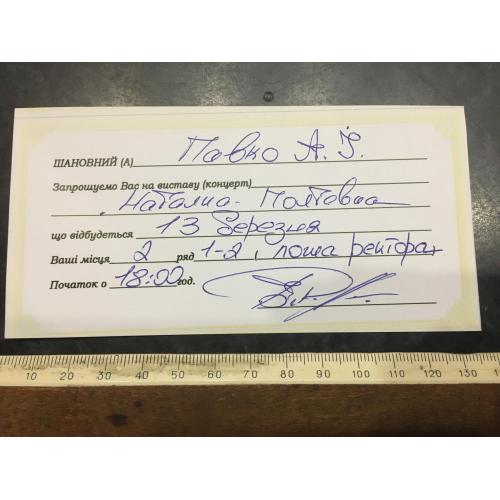 ШАНОВНИЙ (А) Павко А. І.
Запрошуємо Вас на виставу (концерт)
"Наталка-Полтавка
що відбудеться 13 березня
Ваші місця 2 ряд 1-2, ложа ректора
Початок о 18:00 год.
10 20 30 40 50 60 70 80 90 100 110 120 130